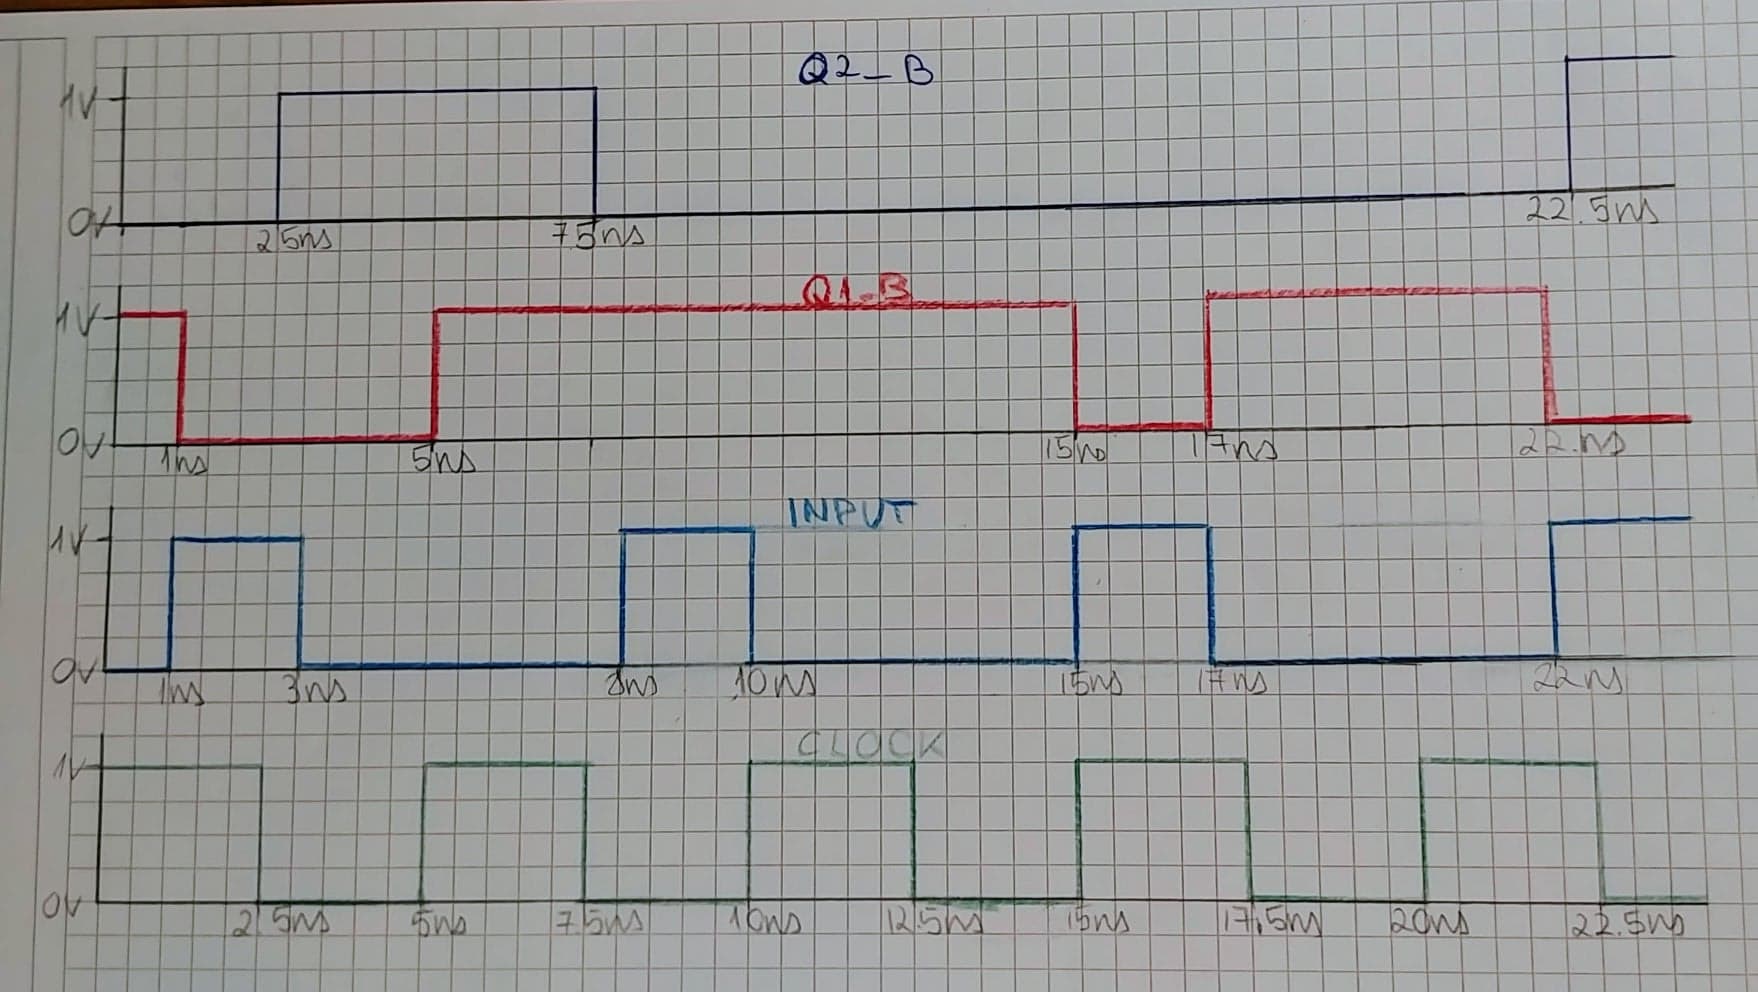 Q2_B
1V
0V
2.5ns 7.5ns 22.5ns
Q1_B
1V
0V
1ns 5ns 15ns 17ns 22ns
INPUT
1V
0V
1ns 3ns 8ns 10ns 15ns 17ns 22ns
CLOCK
1V
0V
2.5ns 5ns 7.5ns 10ns 12.5ns 15ns 17.5ns 20ns 22.5ns